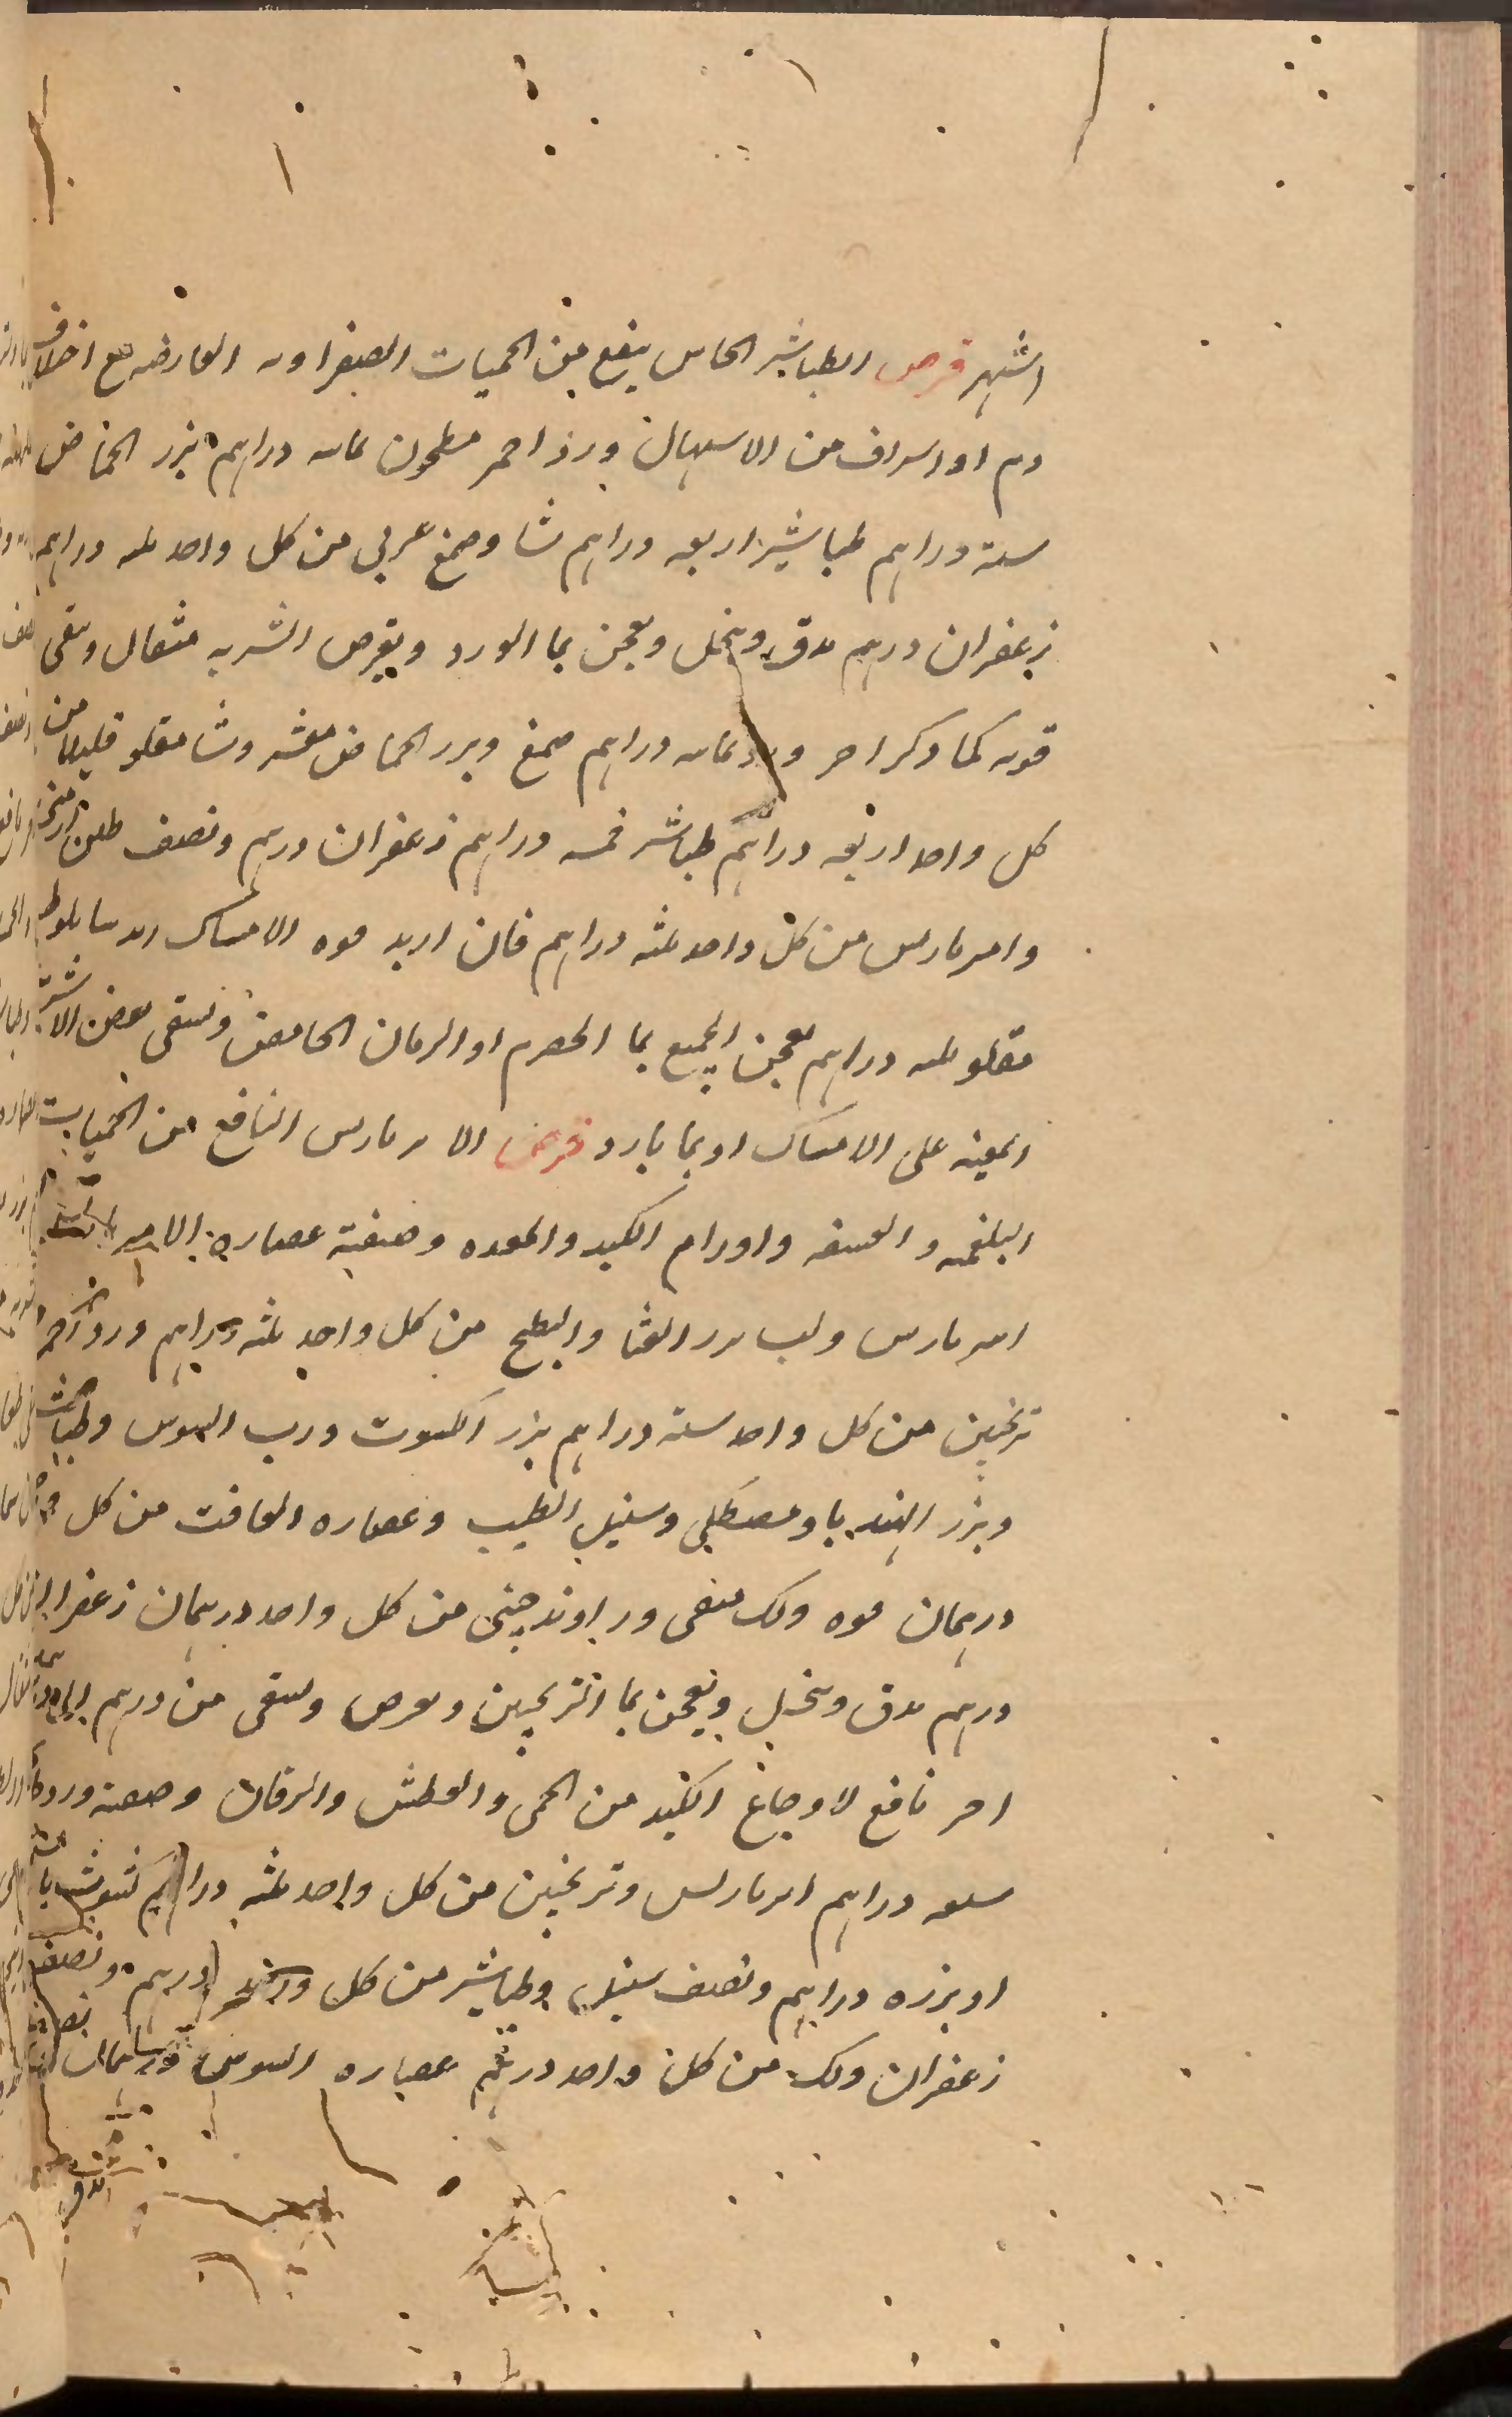 اشهر قرص الطباشير الحابس ينفع من الحميات الصفراويه العارضه مع اختلاف
دم او اسراف من الاسهال ورد احمر مطحون ثمانيه دراهم بزر الحماض
سته دراهم طباشير اربعه دراهم نشا وصمغ عربي من كل واحد ثلثه دراهم
زعفران درهم يدق وينخل ويعجن بما الورد ويقرص الشربه مثقال ويسقى
قوته كما ذكر اخر ورد ثمانيه دراهم صمغ وبزر الحماض مقشر ونشا مقلو قليلا من
كل واحد اربعه دراهم طباشير خمسه دراهم زعفران درهم ونصف طين
وامبرباريس من كل واحد ثلثه دراهم فان اريد قوه الامساك بلوط
مقلو ثلثه دراهم يعجن الجميع بما الحصرم او الرمان الحامض ويسقى ببعض الاشربه
المعينه على الامساك او بما بارد قرص الامبرباريس النافع من الحميات
البلغميه والعتيقه واورام الكبد والمعده وصنعته عصاره
امبرباريس ولب بزر القثا والبطيخ من كل واحد ثلثه دراهم ورد احمر
ترنجبين من كل واحد سته دراهم بزر الكشوت ورب السوس وطباشير
وبزر الهندبا ومصطكي وسنبل الطيب وعصاره الغافت من كل واحد
درهمان فوه ولك منقى وراوند صيني من كل واحد درهمان زعفران
درهم يدق وينخل ويعجن بما الترنجبين ويقرص ويسقى من درهم الى
اخر نافع لاوجاع الكبد من الحمى والعطش واليرقان وصنعته ورد
سبعه دراهم امبرباريس وترنجبين من كل واحد ثلثه دراهم
او بزره دراهم ونصف سنبل وطباشير من كل واحد درهم ونصف
زعفران ولك من كل واحد درهم عصاره السوس درهمان